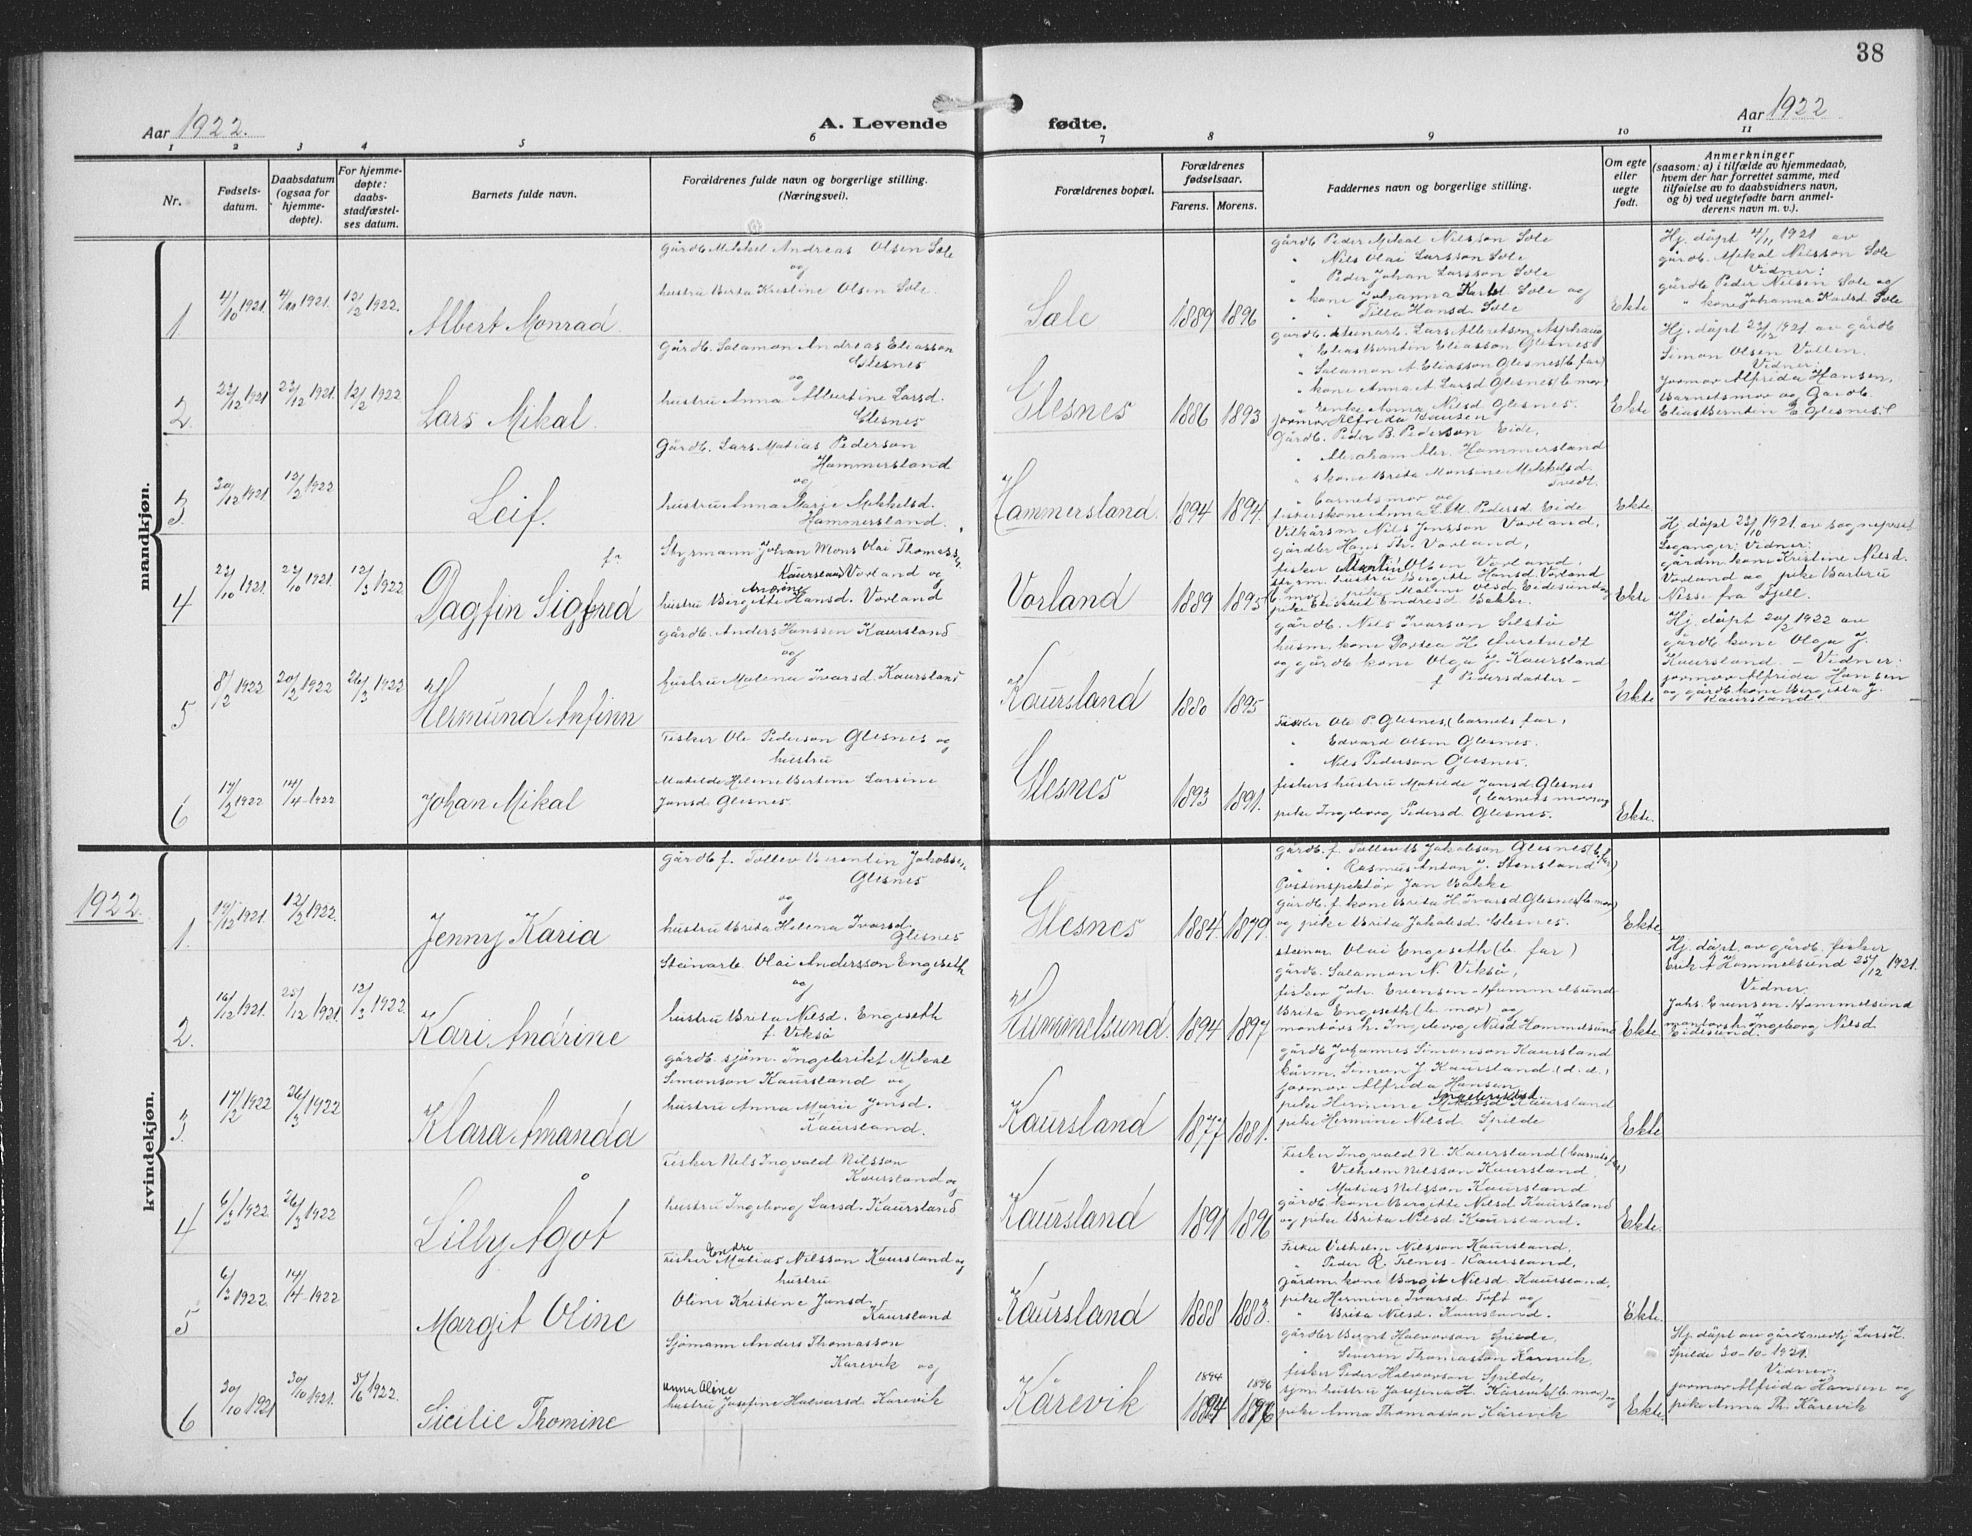 38
Aar 1922.
A. Levende fødte.
Aar 1922
1 2 3 4 5 6 7 8 9 10 11
Nr.
Fødsels-
datum.
Daabsdatum
(ogsaa for
hjemme-
døpte).
For hjemme-
døpte:
daabs-
stadfæstel-
ses datum.
Barnets fulde navn.
Forældrenes fulde navn og borgerlige stilling.
(Næringsvei).
Forældrenes bopæl.
Forældrenes
fødselsaar.
Farens. Morens.
Faddernes navn og borgerlige stilling.
Om egte
eller
uegte
født.
Anmerkninger
(saasom: a) i tilfælde av hjemmedaab,
hvem der har forrettet samme, med
tilføielse av to daabsvidners navn,
og b) ved uegtefødte barn anmel-
derens navn m. v.).
mandkjøn.
1
4/10 1921
4/11 1921.
12/2 1922.
Albert Monrad.
gårdb. Mikkel Andreas Olsen Sæle
og
hustru Berta Kristine Olsen Sæle.
Sæle
1889
1896
gårdb Peder Mikal Nilsson Sæle
" Nils Olai Larsson Sæle
" Peder Johan Larsson Sæle
" kone Johanna Karls. Sæle og
" Hansd. Sæle
Ekte
Hj. døpt 4/11 1921 av
gårdb. Mikal Nilsson Sæle
Vidner:
gårdb Peder Nilsen Sæle og
" kone Johanna Karlsd. Sæle
2
22/12 1921
23/12 1921.
12/2 1922
Lars Mikal.
Gårdb. Salamon Andreas Eliasson
Glesnes
og
hustru Anna Albertine Larsd.
Glesnes
Glesnes
1886
1893
" Elias Bernten Eliasson Glesnes
" Salamon A. Eliasson Glesnes (b. far)
" kone Anna A. Larsd Glesnes (b. mor)
" enke Anna Nilsd Glesnes.
jormor Alfrida Hansen
Ekte
Hj. døpt 23/12 1921 av gårdb
Simon Olsen Vollen.
Vidner:
jormor Alfrida Hansen,
Barnets mor og Gårdb.
Elias Bernten E Glesnes.
3
20/12 1921.
12/2 1922
Leif.
Gårdb. Lars Matias Pederson
Hammersland
og
hustru Anna Marje Mikkelsd.
Hammersland.
Hammersland.
1894
1894.
Gårdb. Peder B. Pederson Eide,
" Abraham Abr. Hammersland
" kone Brita Monsine Mikkelsd.
Tvedt.
" barnets mor og
fiskerskone Anna L.M. Pedersd Eide
Ekte
4
22/10 1921
23/10 1921.
12/3 1922
Dagfin Sigfred
Styrmann Johan Mons Olai Thomass.
Kaursland Vorland og
Andrine
hustru Birgitte Hansd. Vorland
Vorland
1889
1895
Vilkårsm Nils Jensson Vorland,
gårdbr Hans Th. Vorland,
fisker Martin Olsen Vorland,
styrm. hustru Bergitte Hansd. Vorland
(b. mor), pike Malene Olsd Eidesund og
pike Elisabet Endresd Bakke.
Ekte
Hj. døpt 23/10 1921 av sogneprest
Leganger; Vidner:
gårdm. kone Kristine Nilsd.
Vorland og pike Barbru
Nisse fra Fjell.
5
8/2 1922
20/2 1922
26/3 1922
Hermund Anfinn
gårdb. Anders Hanssen Kaursland
og
hustru Malena Ivarsd. Kaursland
Kaursland
1880
1895
gårdb. Nils Ivarson Selstø
husm. kone Dortea H. Auretvedt
og gårdb kone Olga J. Kaursland
f Pedersdatter -
Ekte
Hj. døpt 20/2 1922 av
gårdb kone Olga J.
Kaursland. - Vidner:
jormor Alfrida Hansen
og gårdb kone Bergitta J.
Kaursland.
6
17/2 1922
14/4 - 1922
Johan Mikal
Fisker Ole Pederson Glesnes og
hustru
Matilde Helene Bertine Larsine
Jansd. Glesnes.
Glesnes
1893
1891.
Fisker Ole P. Glesnes, (barnets far,
" Edvard Olsen Glesnes.
" Nils Pederson Glesnes.
fiskers hustru Matilde Jansd. Glesnes
(barnets mor og
pike Ingeborg Pedersd. Glesnes.
Ekte.
1922.
kvindekjøn.
1
14/12 1921.
12/2 1922.
Jenny Karia
gårdb f. Tollev Berentin Jakobsen
Glesnes
og
hustru Brita Helena Ivarsd.
Glesnes
Glesnes
1884.
1879
gårdb. f. Tollev B Jakobson Glesnes (b. far)
" " Rasmus Anton J. Stensland
Postinspektør Jan Bakke
Gårdb. f. kone Brita H. Ivarsd Glesnes (b. mor)
og pike Brita Jakobsd. Glesnes.
Ekte
2.
16/12 1921.
25/12 1921
12/3 1922.
Kari Andrine
Steinarb. Olai Andersson Engeseth
og
hustru Brita Nilsd. Engeseth
f. Viksø
Hummelsund.
1894
1897
steinar. Olai Engeseth (b. far)
gårdb. Salamon N. Viksø,
fisker Joh. Evensen - Hummelsund
Brita Engeseth (b. mor) og
montørs h. Ingeborg Nilsd Hommelsund
Ekte
Hj. døpt av gårdb. fisker
Erik A Hommelsund 25/12 1921.
Vidner,
Johs. Evensen - Hommelsund
montørsh. Ingeborg Nilsd.
Eidesund.
3.
17/2 1922
26/3 1922
Klara Amanda
gårdb. sjøm. Ingebrikt Mikal
Simonson Kaursland og
hustru Anna Marie Jensd.
Kaursland.
Kaursland
1877
1881.
gårdb Johannes Simonson Kaursland
Simon J Kaursland (d. d.)
jormor Alfrida Hansen
Ingebriktsd.
pike Hermine Kaursland
pike Hermine Nilsd. Spilde
Ekte
4
6/3 1922.
26/3 1922
Lilly Ågot
Fisker Nils Ingvald Nilsson
Kaursland og
hustru Ingeborg Larsd. Kaursland
Kaursland
1891
1896
Fisker Ingvald N. Kaursland (barnets far)
" Vilhelm Nilsson Kaursland
" Matias Nilsson Kaursland
gårdb. kone Bergitte Nilsd Kaursland
og pike Brita Nilsd Kaursland.
Ekte.
5
6/3 1922.
14/4 - 1922
Margit Oline
Endre
Fisker Matias Nilsson Kaursland og
hustru
Oline Kristene Jansd.
Kaursland
Kaursland
1888
1883.
Fisker Vilhelm Nilsson Kaursland,
" Peder R. Telnes - Kaursland,
gårdm. kone Bergit Nilsd. Kaursland,
pike Hermine Ivarsd. Toft og
" Brita Nilsd. Kaursland.
Ekte.
6
30/10 1921
30/10 1921.
5/6 1922.
Sicilie Thomine
Sjømann Anders Thomasson
Kårevik og
Anna Oline
hustru Josefine Halvarsd. Kårevik
Kårevik
1894
1896
1894
1896
gårdbr Bernt Halvorson Spilde,
" Severen Thomasson Kårevik,
fisker Peder Halvorsson Spilde,
sjm. hustru Josefina H. Kårevik (b. mor) og
pike Anna Thomasson Kårevik
Ekte.
Hj. døpt av gårdbmedhj Lars
Spilde 30-10-1921.
Vidner.
jormor Alfrida Hansen og
pike Anna Th. Kårevik